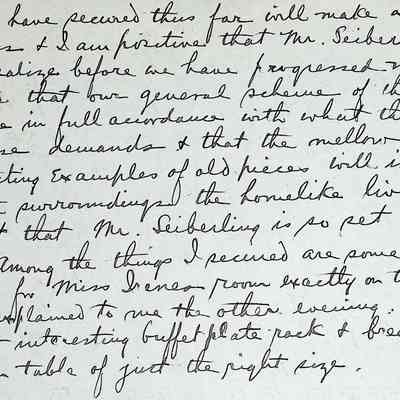 have secured thus far will make a
s & I am positive that Mr. Seiberl
ealize before we have progressed
that our general scheme of th
e in full accordance with what th
se demands & that the mellow
ting Examples of old pieces will i
surroundings the homelike liv
t that Mr. Seiberling is so set
Among the things I secured are some
for Miss Irenes room exactly on t
xplained to me the other evening.
interesting buffet plate rack & brea
table of just the right size.